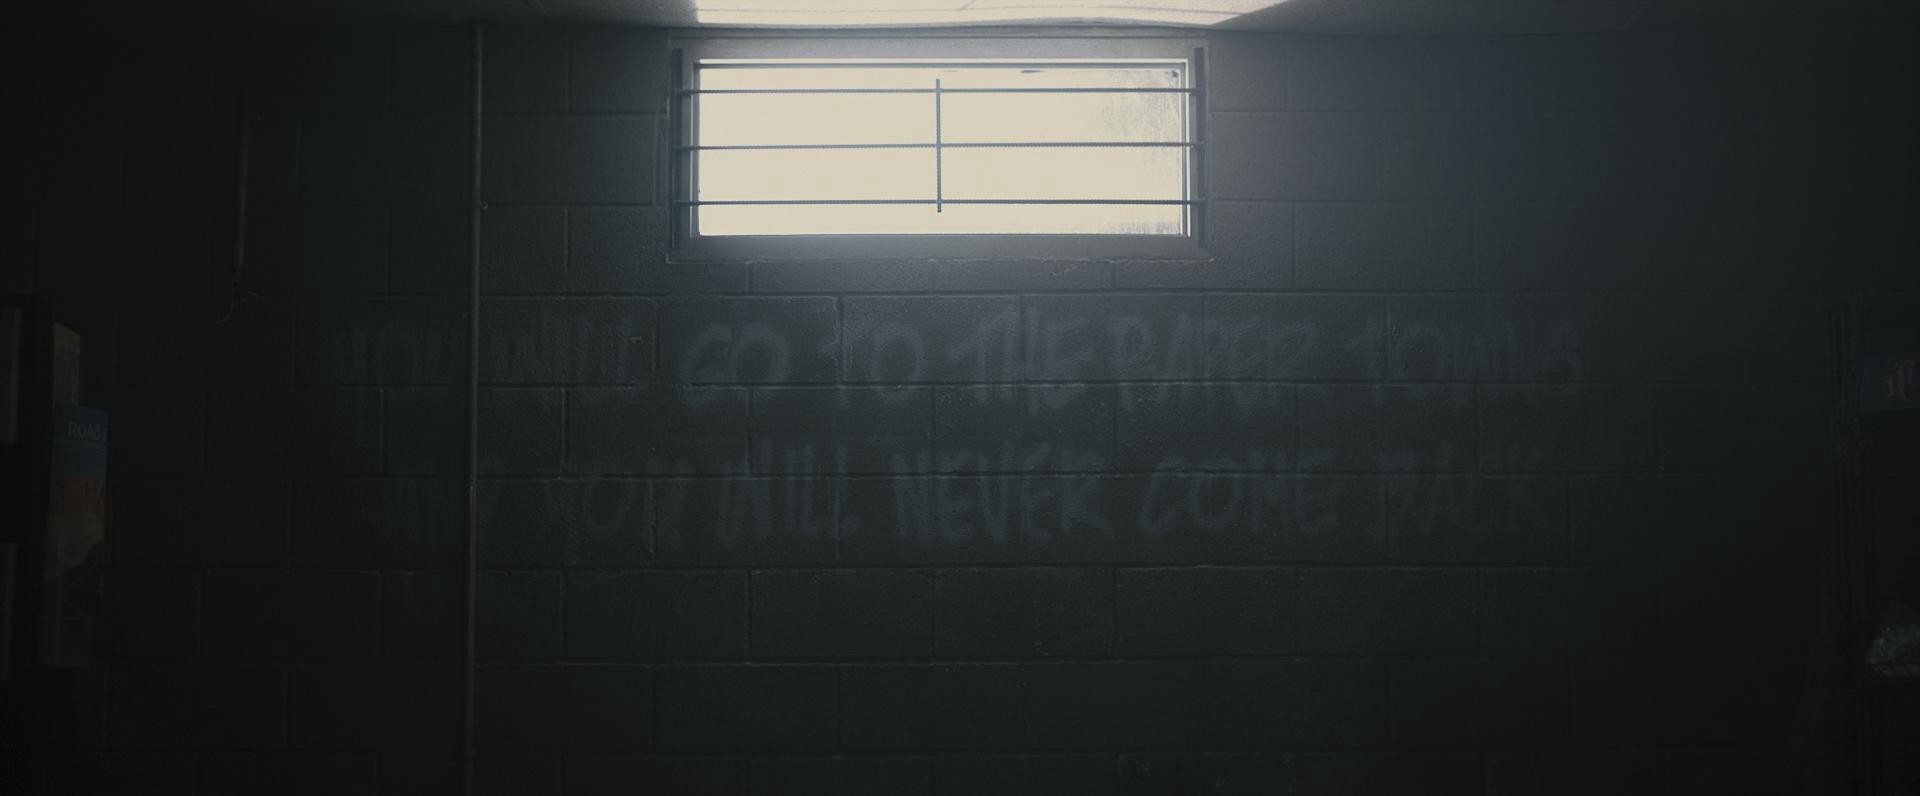 YOU WILL GO TO THE PAPER TOWNS
AND YOU WILL NEVER COME BACK
ROAD